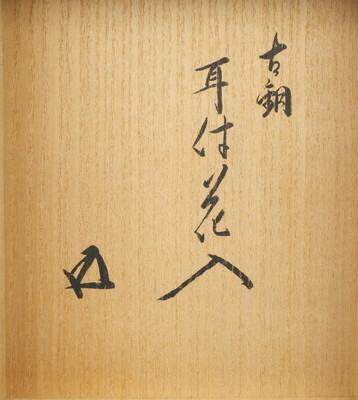 古銅
耳付花入